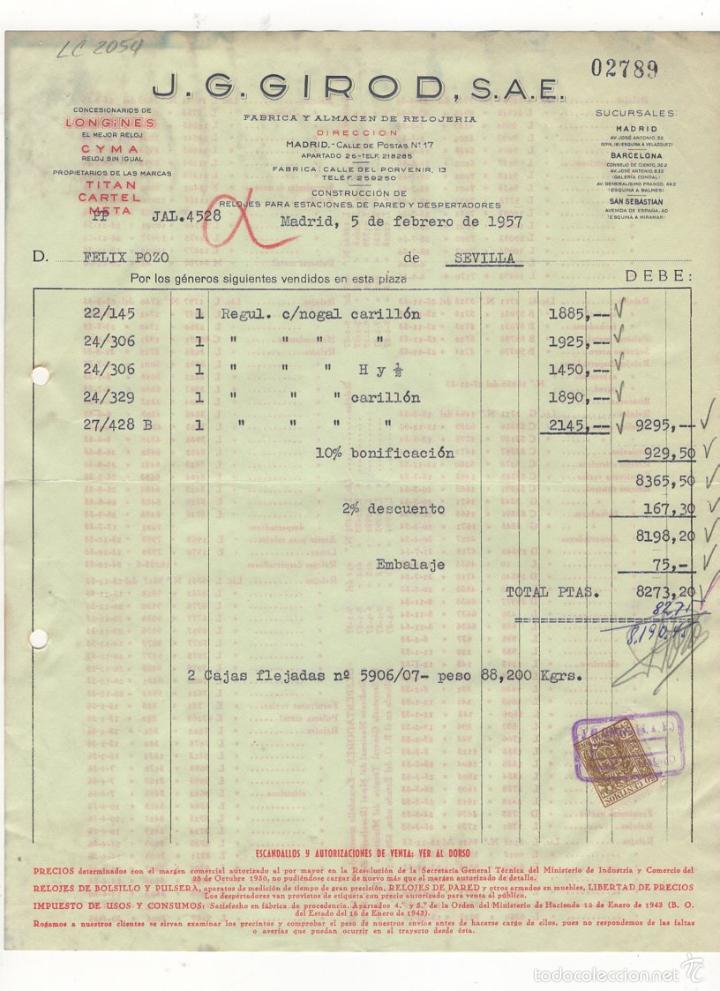 LC 2054
02789
J. G. GIROD, S.A.E.
CONCESIONARIOS DE
LONGINES
EL MEJOR RELOJ
CYMA
RELOJ SIN IGUAL
PROPIETARIOS DE LAS MARCAS
TITAN
CARTEL
META
FABRICA Y ALMACEN DE RELOJERIA
DIRECCION
MADRID.-CALLE DE POSTAS Nº 17
APARTADO 26-TELF. 218285
FABRICA: CALLE DEL PORVENIR, 13
TELÉF. 259250
CONSTRUCCIÓN DE
RELOJES PARA ESTACIONES, DE PARED Y DESPERTADORES
SUCURSALES
MADRID
BARCELONA
SAN SEBASTIAN
AVENIDA DE ESPAÑA, 40
PP JAL.4528
Madrid, 5 de febrero de 1957
D. FELIX POZO de SEVILLA
Por los géneros siguientes vendidos en esta plaza DEBE:
22/145 1 Regul. c/nogal carillón 1885,--
24/306 1 " " " " 1925,--
24/306 1 " " " H y ½ 1450,--
24/329 1 " " " carillón 1890,--
27/428 B 1 " " " " 2145,-- 9295,--
10% bonificación 929,50
8365,50
2% descuento 167,30
8198,20
Embalaje 75,-
TOTAL PTAS. 8273,20
2 Cajas flejadas nº 5906/07- peso 88,200 Kgrs.
ESCANDALLOS Y AUTORIZACIONES DE VENTA: VER AL DORSO
PRECIOS determinados con el margen comercial autorizado al por mayor en la Resolución de la Secretaría General Técnica del Ministerio de Industria y Comercio del
28 de Octubre 1936, no pudiéndose cargar de nuevo más que el margen autorizado de detalle.
RELOJES DE BOLSILLO Y PULSERA, aparatos de medición de tiempo de gran precisión, RELOJES DE PARED y otros armados en muebles, LIBERTAD DE PRECIOS
Los despertadores van provistos de etiqueta con precio autorizado para venta al público.
IMPUESTO DE USOS Y CONSUMOS: Satisfecho en fábrica de procedencia. Apartados 4.º y 5.º de la Orden del Ministerio de Hacienda 13 de Enero de 1943 (B. O.
del Estado del 16 de Enero de 1943).
Rogamos a nuestros clientes se sirvan examinar los precintos y comprobar el peso de nuestros envíos antes de hacerse cargo de ellos, pues no respondemos de las faltas
o averías que puedan ocurrir en el trayecto desde ésta.
todocoleccion.net